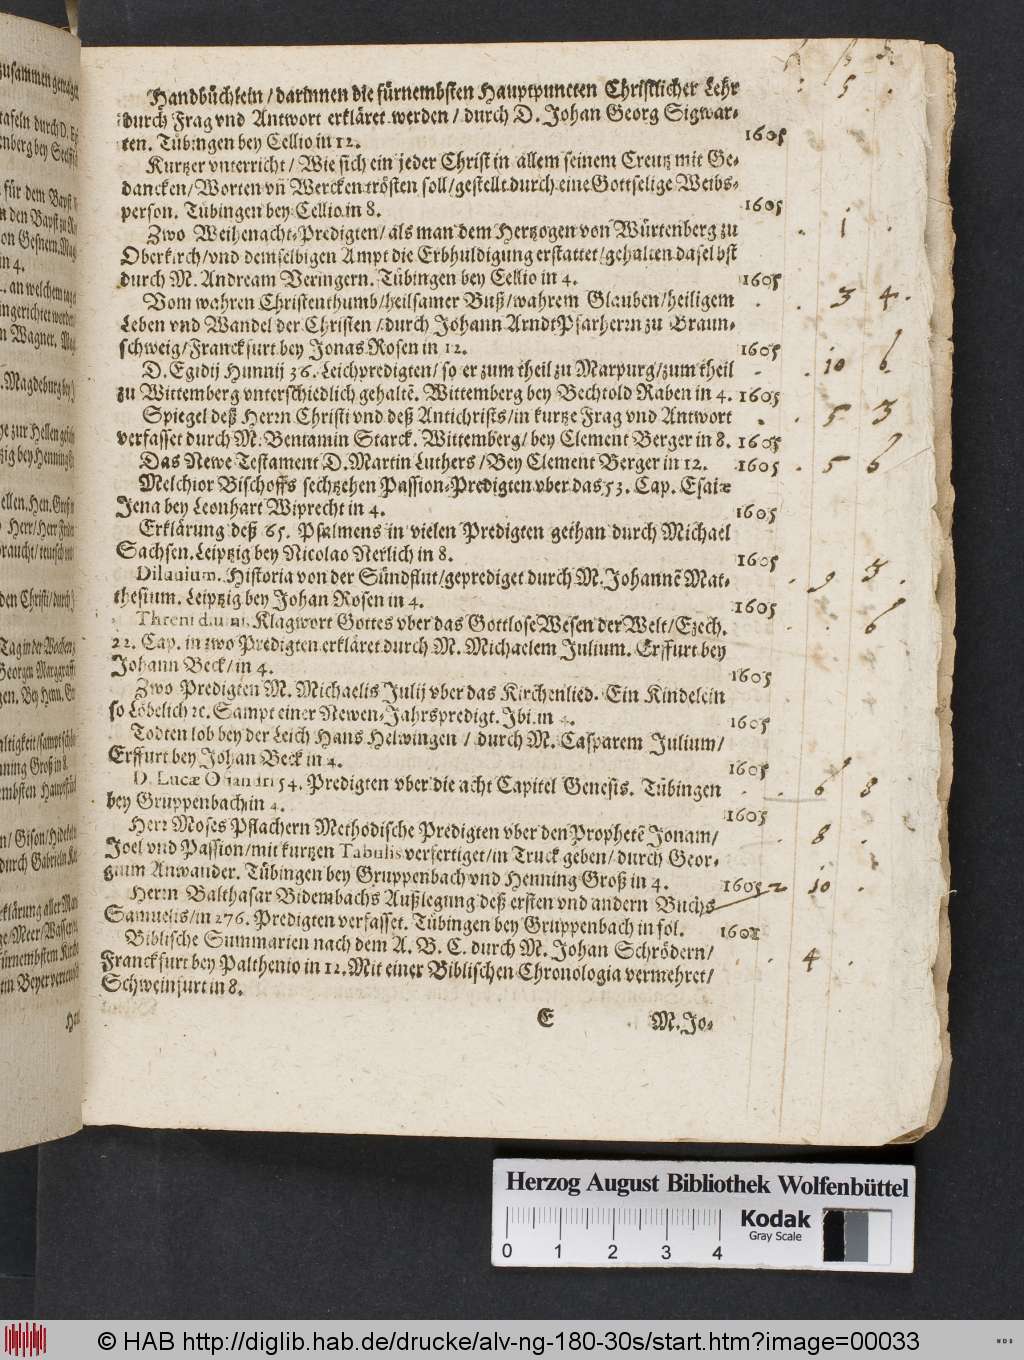 Handbüchlein / darinnen die fürnembsten Hauptpuncten Christlicher Lehr 5
durch Frag vnd Antwort erkläret werden / durch D. Johan Georg Sigwar-
ten. Tübingen bey Cellio in 12. 1605
Kurtzer vnterricht / Wie sich ein jeder Christ in allem seinem Creutz mit Ge-
dancken / Worten vñ Wercken trösten soll / gestellt durch eine Gottselige Weibs-
person. Tübingen bey Cellio in 8. 1605
Zwo Weihenacht-Predigten / als man dem Hertzogen von Würtenberg zu 1
Oberkirch / vnd demselbigen Ampt die Erbhuldigung erstattet / gehalten daselbst
durch M. Andream Veringern. Tübingen bey Cellio in 4. 1605
Vom wahren Christenthumb / heilsamer Buß / wahrem Glauben / heiligem 3 4
Leben vnd Wandel der Christen / durch Johann Arndt Pfarherrn zu Braun-
schweig / Franckfurt bey Jonas Rosen in 12. 1605
D. Egidij Hunnij 36. Leichpredigten / so er zum theil zu Marpurg / zum theil 10 6
zu Wittemberg vnterschiedlich gehaltē. Wittemberg bey Bechtold Raben in 4. 1605
Spiegel deß Herrn Christi vnd deß Antichrists / in kurtze Frag vnd Antwort 5 3
verfasset durch M. Bentamin Starck. Wittemberg / bey Clement Berger in 8. 1605
Das Newe Testament D. Martin Luthers / Bey Clement Berger in 12. 1605 5 6
Melchior Bischoffs sechtzehen Passion-Predigten vber das 53. Cap. Esaiæ
Jena bey Leonhart Wiprecht in 4. 1605
Erklärung deß 65. Psalmens in vielen Predigten gethan durch Michael
Sachsen. Leiptzig bey Nicolao Nerlich in 8. 1605
Diluuium. Historia von der Sündflut / geprediget durch M. Johannē Mat- 9 3
thesium. Leiptzig bey Johan Rosen in 4. 1605
Threni diuini. Klagwort Gottes vber das Gottlose Wesen der Welt / Ezech. 6
22. Cap. in zwo Predigten erkläret durch M. Michaelem Julium. Erffurt bey
Johann Beck / in 4. 1605
Zwo Predigten M. Michaelis Julij vber das Kirchenlied. Ein Kindelein
so Löbelich ꝛc. Sampt einer Newen-Jahrspredigt. Jbi. in 4. 1605
Todten lob bey der Leich Hans Helwingen / durch M. Casparem Julium /
Erffurt bey Johan Beck in 4. 1605
D. Lucæ Osiandri 54. Predigten vber die acht Capitel Genesis. Tübingen 6 8
bey Gruppenbach in 4. 1605
Herr Moses Pflachern Methodische Predigten vber den Prophetē Jonam / 8
Joel vnd Passion / mit kurtzen Tabulis verfertiget / in Truck geben / durch Geor-
gium Anwander. Tübingen bey Gruppenbach vnd Henning Groß in 4. 1605 2 10
Herrn Balthasar Bidembachs Außlegung deß ersten vnd andern Buchs
Samuelis / in 276. Predigten verfasset. Tübingen bey Gruppenbach in fol. 1605
Biblische Summarien nach dem A. B. C. durch M. Johan Schrödern / 4
Franckfurt bey Palthenio in 12. Mit einer Biblischen Chronologia vermehret /
Schweinfurt in 8.
E M. Jo-
Herzog August Bibliothek Wolfenbüttel
Kodak
Gray Scale
0 1 2 3 4
© HAB http://diglib.hab.de/drucke/alv-ng-180-30s/start.htm?image=00033